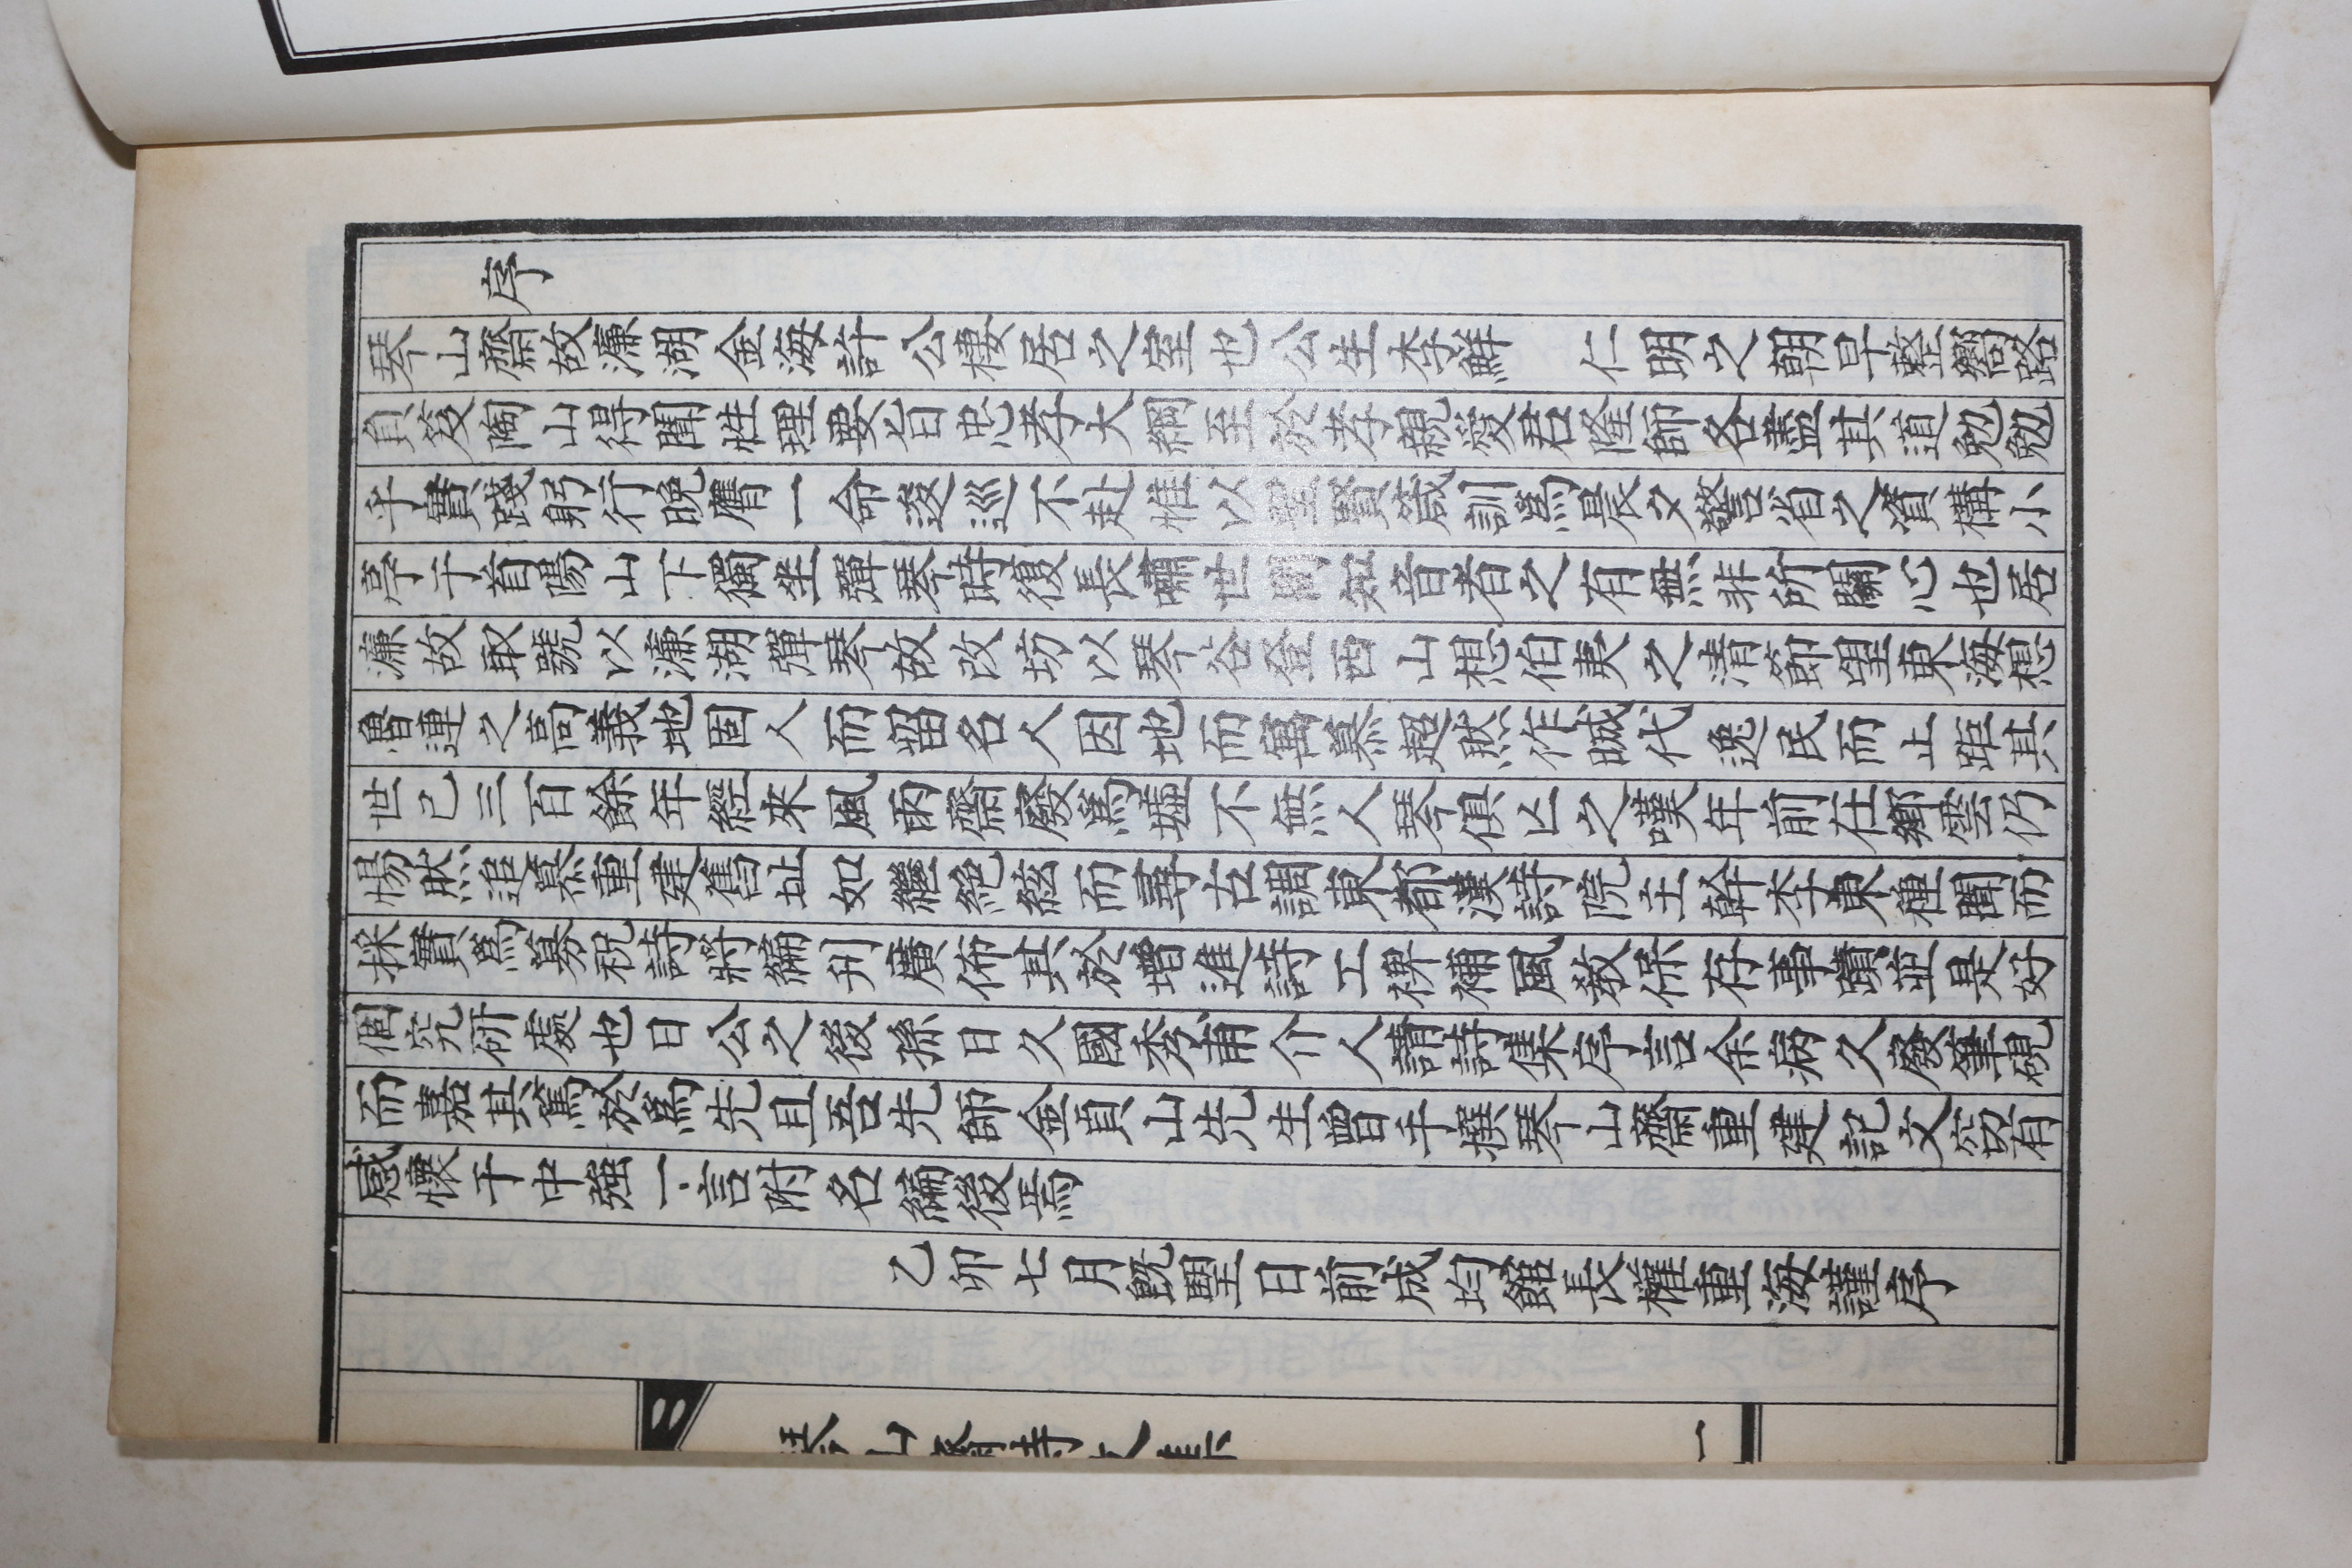 序
琴山齋故濂湖金海許公棲居之室也公生李鮮　仁明之朝早整嚮路
負笈陶山得聞性理要旨忠孝大綱至於孝親愛君隆師各盡其道勉勉
乎實踐躬行晩膺一命逡巡不赴惟以聖賢箴訓爲晨夕警省之資構小
亭于首陽山下獨坐彈琴時復長嘯世間知音者之有無非所關心也居
濂故取號以濂湖彈琴故改坊以琴谷登西山想伯夷之清節望東海想
魯連之高義地固人而留名人因地而寓慕超然作晠代逸民而止距其
世已三百餘年經來風雨齋廢爲墟不無人琴俱亡之嘆年前在鄉雲仍
惕然追慕重建舊址如繼絶絃而尋古調東都漢詩院主幹李東種聞而
採實爲募祝詩將編刋廣佈其於增進詩工裨補風教保存事蹟並是好
個究研處也日公之後孫日久國秀甫介人請詩集序言余病久廢筆硯
而嘉其篤於爲先且吾先師金貞山先生曾手撰琴山齋重建記文窃有
感懷于中強一言附名編後焉
乙卯七月旣朢日前成均館長權重海謹序
琴山齋詩文集
一